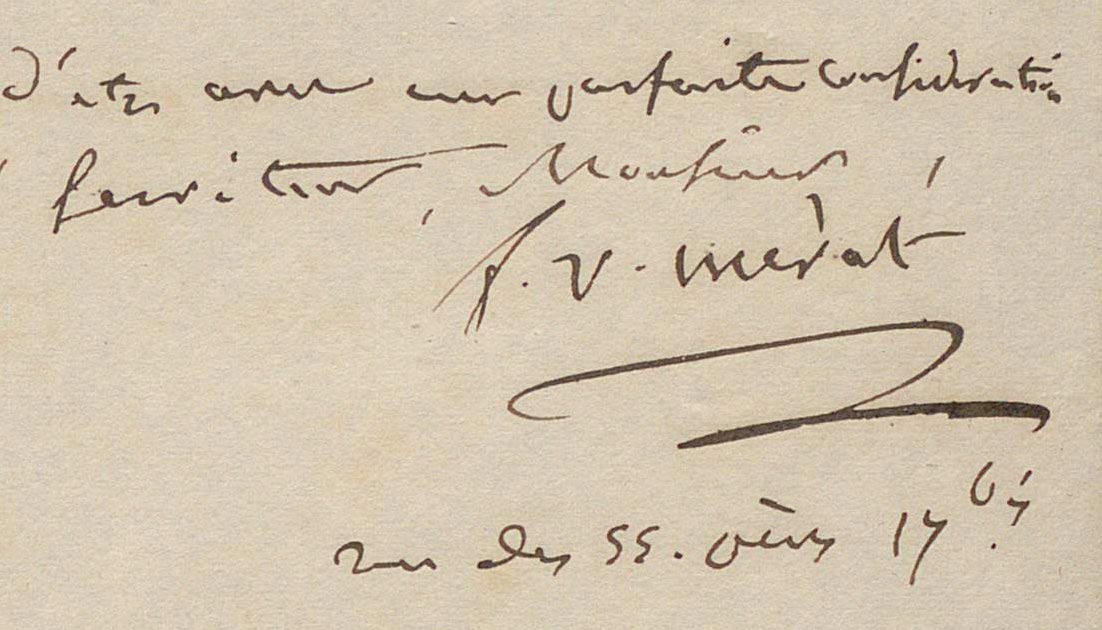 d'etre avec une parfaite consideration
serviteur, Monsieur,
f. v. mérat
rue des SS. pères 17